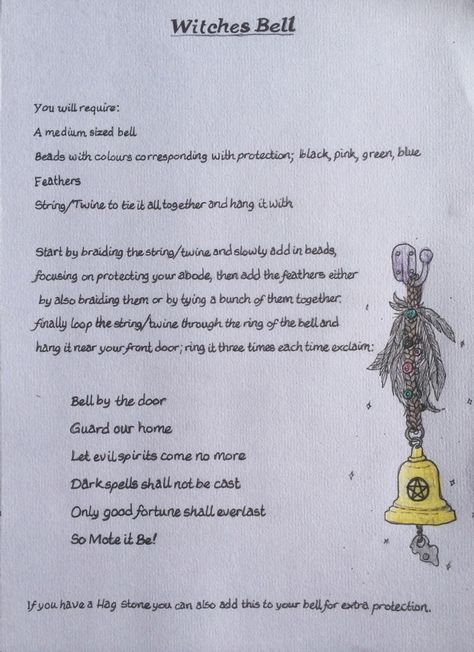 Witches Bell
You will require:
A medium sized bell
Beads with colours corresponding with protection; black, pink, green, blue
Feathers
String/Twine to tie it all together and hang it with
Start by braiding the string/twine and slowly add in beads,
focusing on protecting your abode, then add the feathers either
by also braiding them or by tying a bunch of them together.
finally loop the string/twine through the ring of the bell and
hang it near your front door; ring it three times each time exclaim:
Bell by the door
Guard our home
Let evil spirits come no more
Dark spells shall not be cast
Only good fortune shall everlast
So Mote it Be!
If you have a Hag Stone you can also add this to your bell for extra protection.